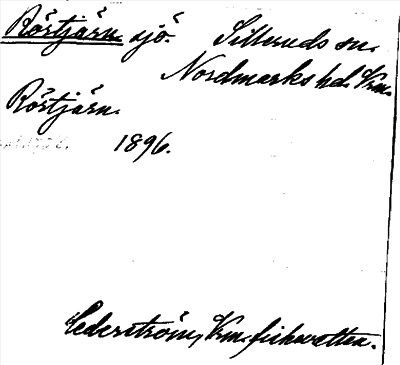 Röstjärn sjö. Silleruds sn.
Nordmarks hd. Vrm.
Röstjärn.
1896.
Cederström, Vrm. fiskevatten.